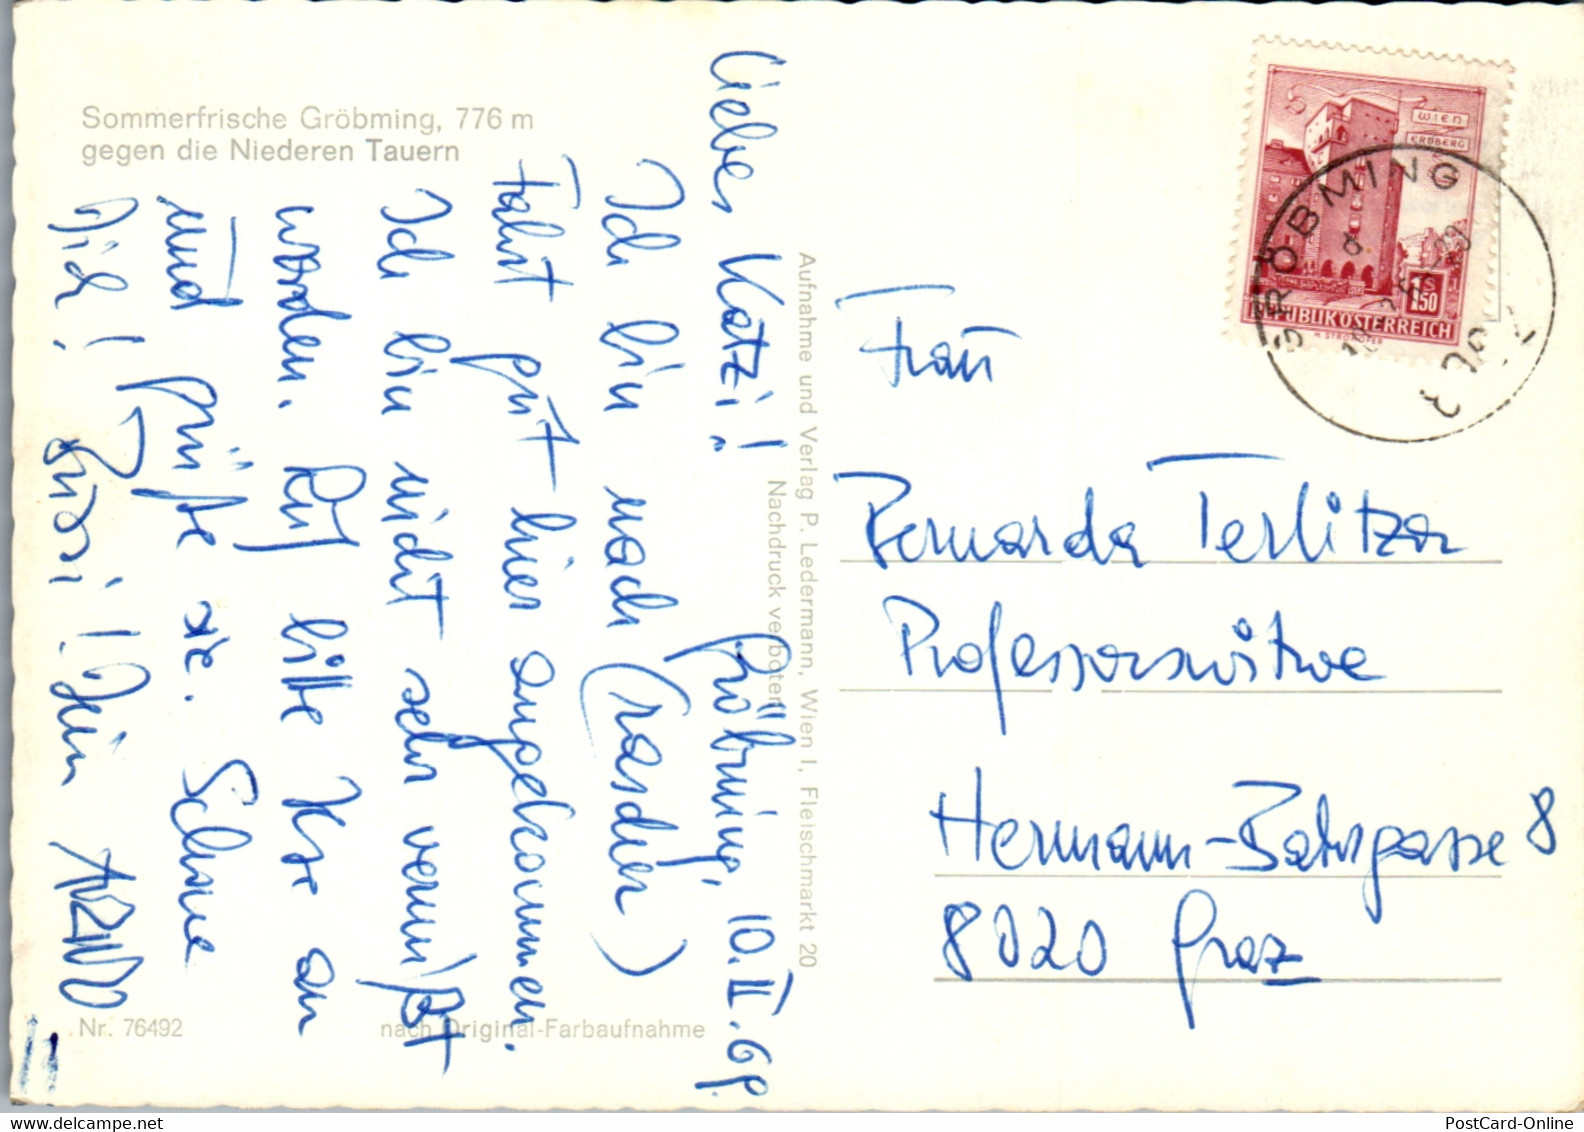 Sommerfrische Gröbming, 776 m
gegen die Niederen Tauern
Gröbming, 10. II. 69.
Liebes Katzi!
Ich bin nach (rascher)
Fahrt gut hier angekommen.
Ich bin nicht sehr vermißt
worden. Ruf bitte Ilse an
und grüße sie. Schone
Dich! Bussi! Dein ARNO
Nr. 76492
nach Original-Farbaufnahme
Aufnahme und Verlag P. Ledermann, Wien I, Fleischmarkt 20
Nachdruck verboten
WIEN
ERDBERG
S 1.50
REPUBLIK ÖSTERREICH
H. STROHOFER
GRÖBMING
Frau
Bernarda Terlitza
Professorswitwe
Hermann-Bahrgasse 8
8020 Graz
PostCard-Online